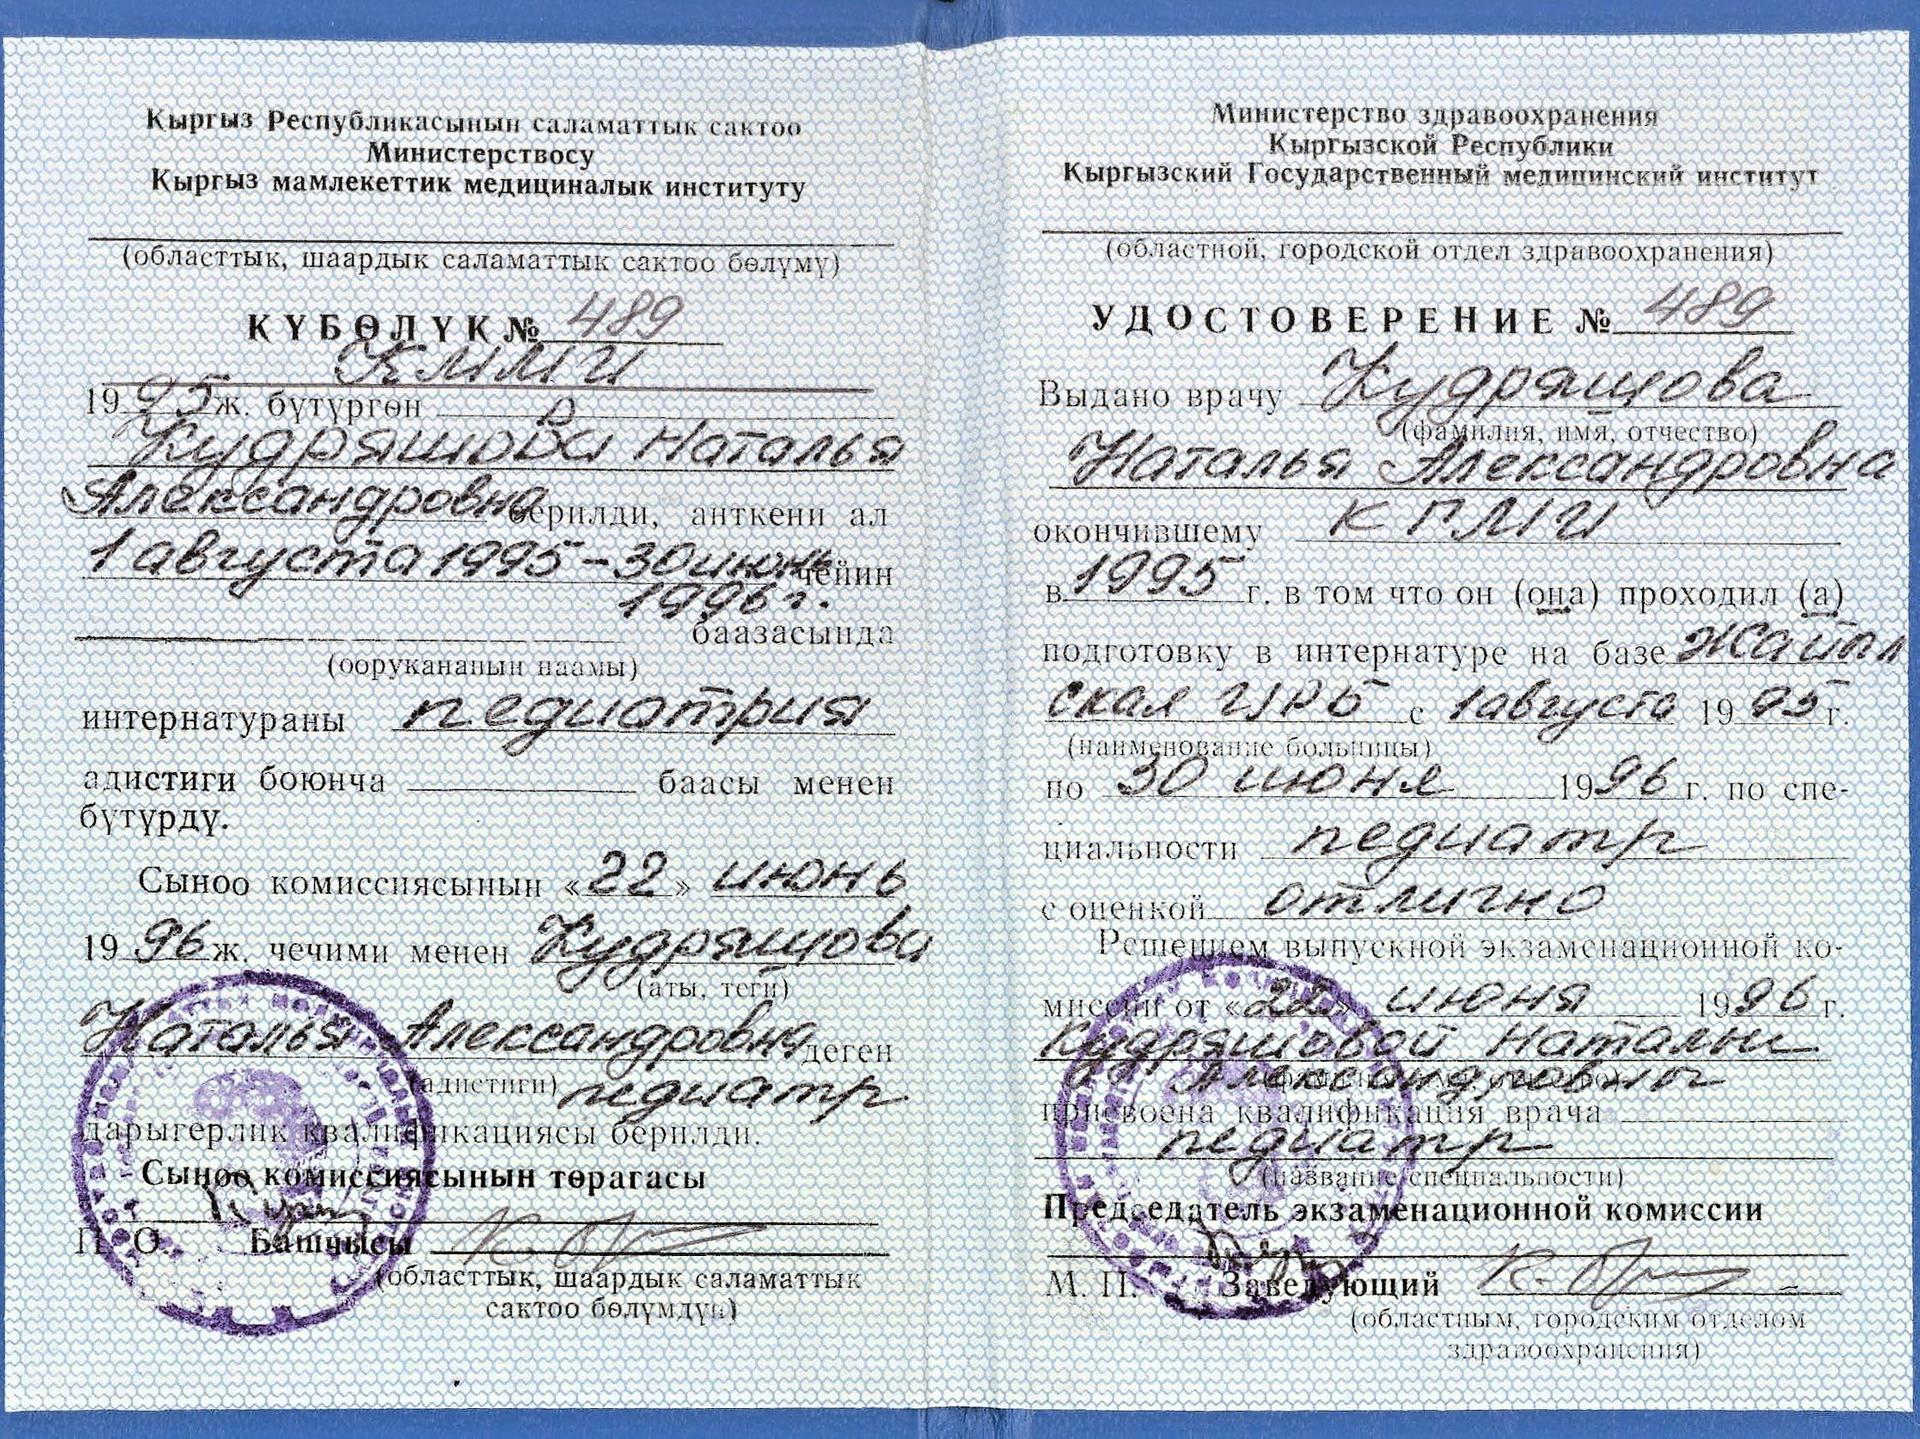 Кыргыз Республикасынын саламаттык сактоо
Министерствосу
Кыргыз мамлекеттик медициналык институту
(областтык, шаардык саламаттык сактоо бөлүмү)
КҮБӨЛҮК № 489
КММИ
1995ж. бүтүргөн
Кудряшова Наталья
Александровна берилди, анткени ал
1 августа 1995 - 30 июнь чейин
1996 г.
баазасында
(оорукананын наамы)
интернатураны педиатрия
адистиги боюнча баасы менен
бүтүрдү.
Сыноо комиссиясынын «22» июнь
1996ж. чечими менен Кудряшова
(аты, теги)
Наталья Александровна деген
(адистиги) педиатр
дарыгерлик квалификациясы берилди.
Сыноо комиссиясынын төрагасы
Башчысы
(областтык, шаардык саламаттык
сактоо бөлүмдүн)
Министерство здравоохранения
Кыргызской Республики
Кыргызский Государственный медицинский институт
(областной, городской отдел здравоохранения)
УДОСТОВЕРЕНИЕ № 489
Выдано врачу Кудряшова
(фамилия, имя, отчество)
Наталья Александровна
окончившему КГМИ
в 1995 г. в том что он (она) проходил (а)
подготовку в интернатуре на базе Жайыл
ская с 1 августа 1995 г.
(наименование больницы)
по 30 июня 1996 г. по спе-
циальности педиатр
с оценкой отлично
Решением выпускной экзаменационной ко-
миссии от «22» июня 1996 г.
Кудряшовой Натальи
Александровны
присвоена квалификация врача
педиатр
(название специальности)
Председатель экзаменационной комиссии
М. П. Заведующий
(областным, городским отделом
здравоохранения)